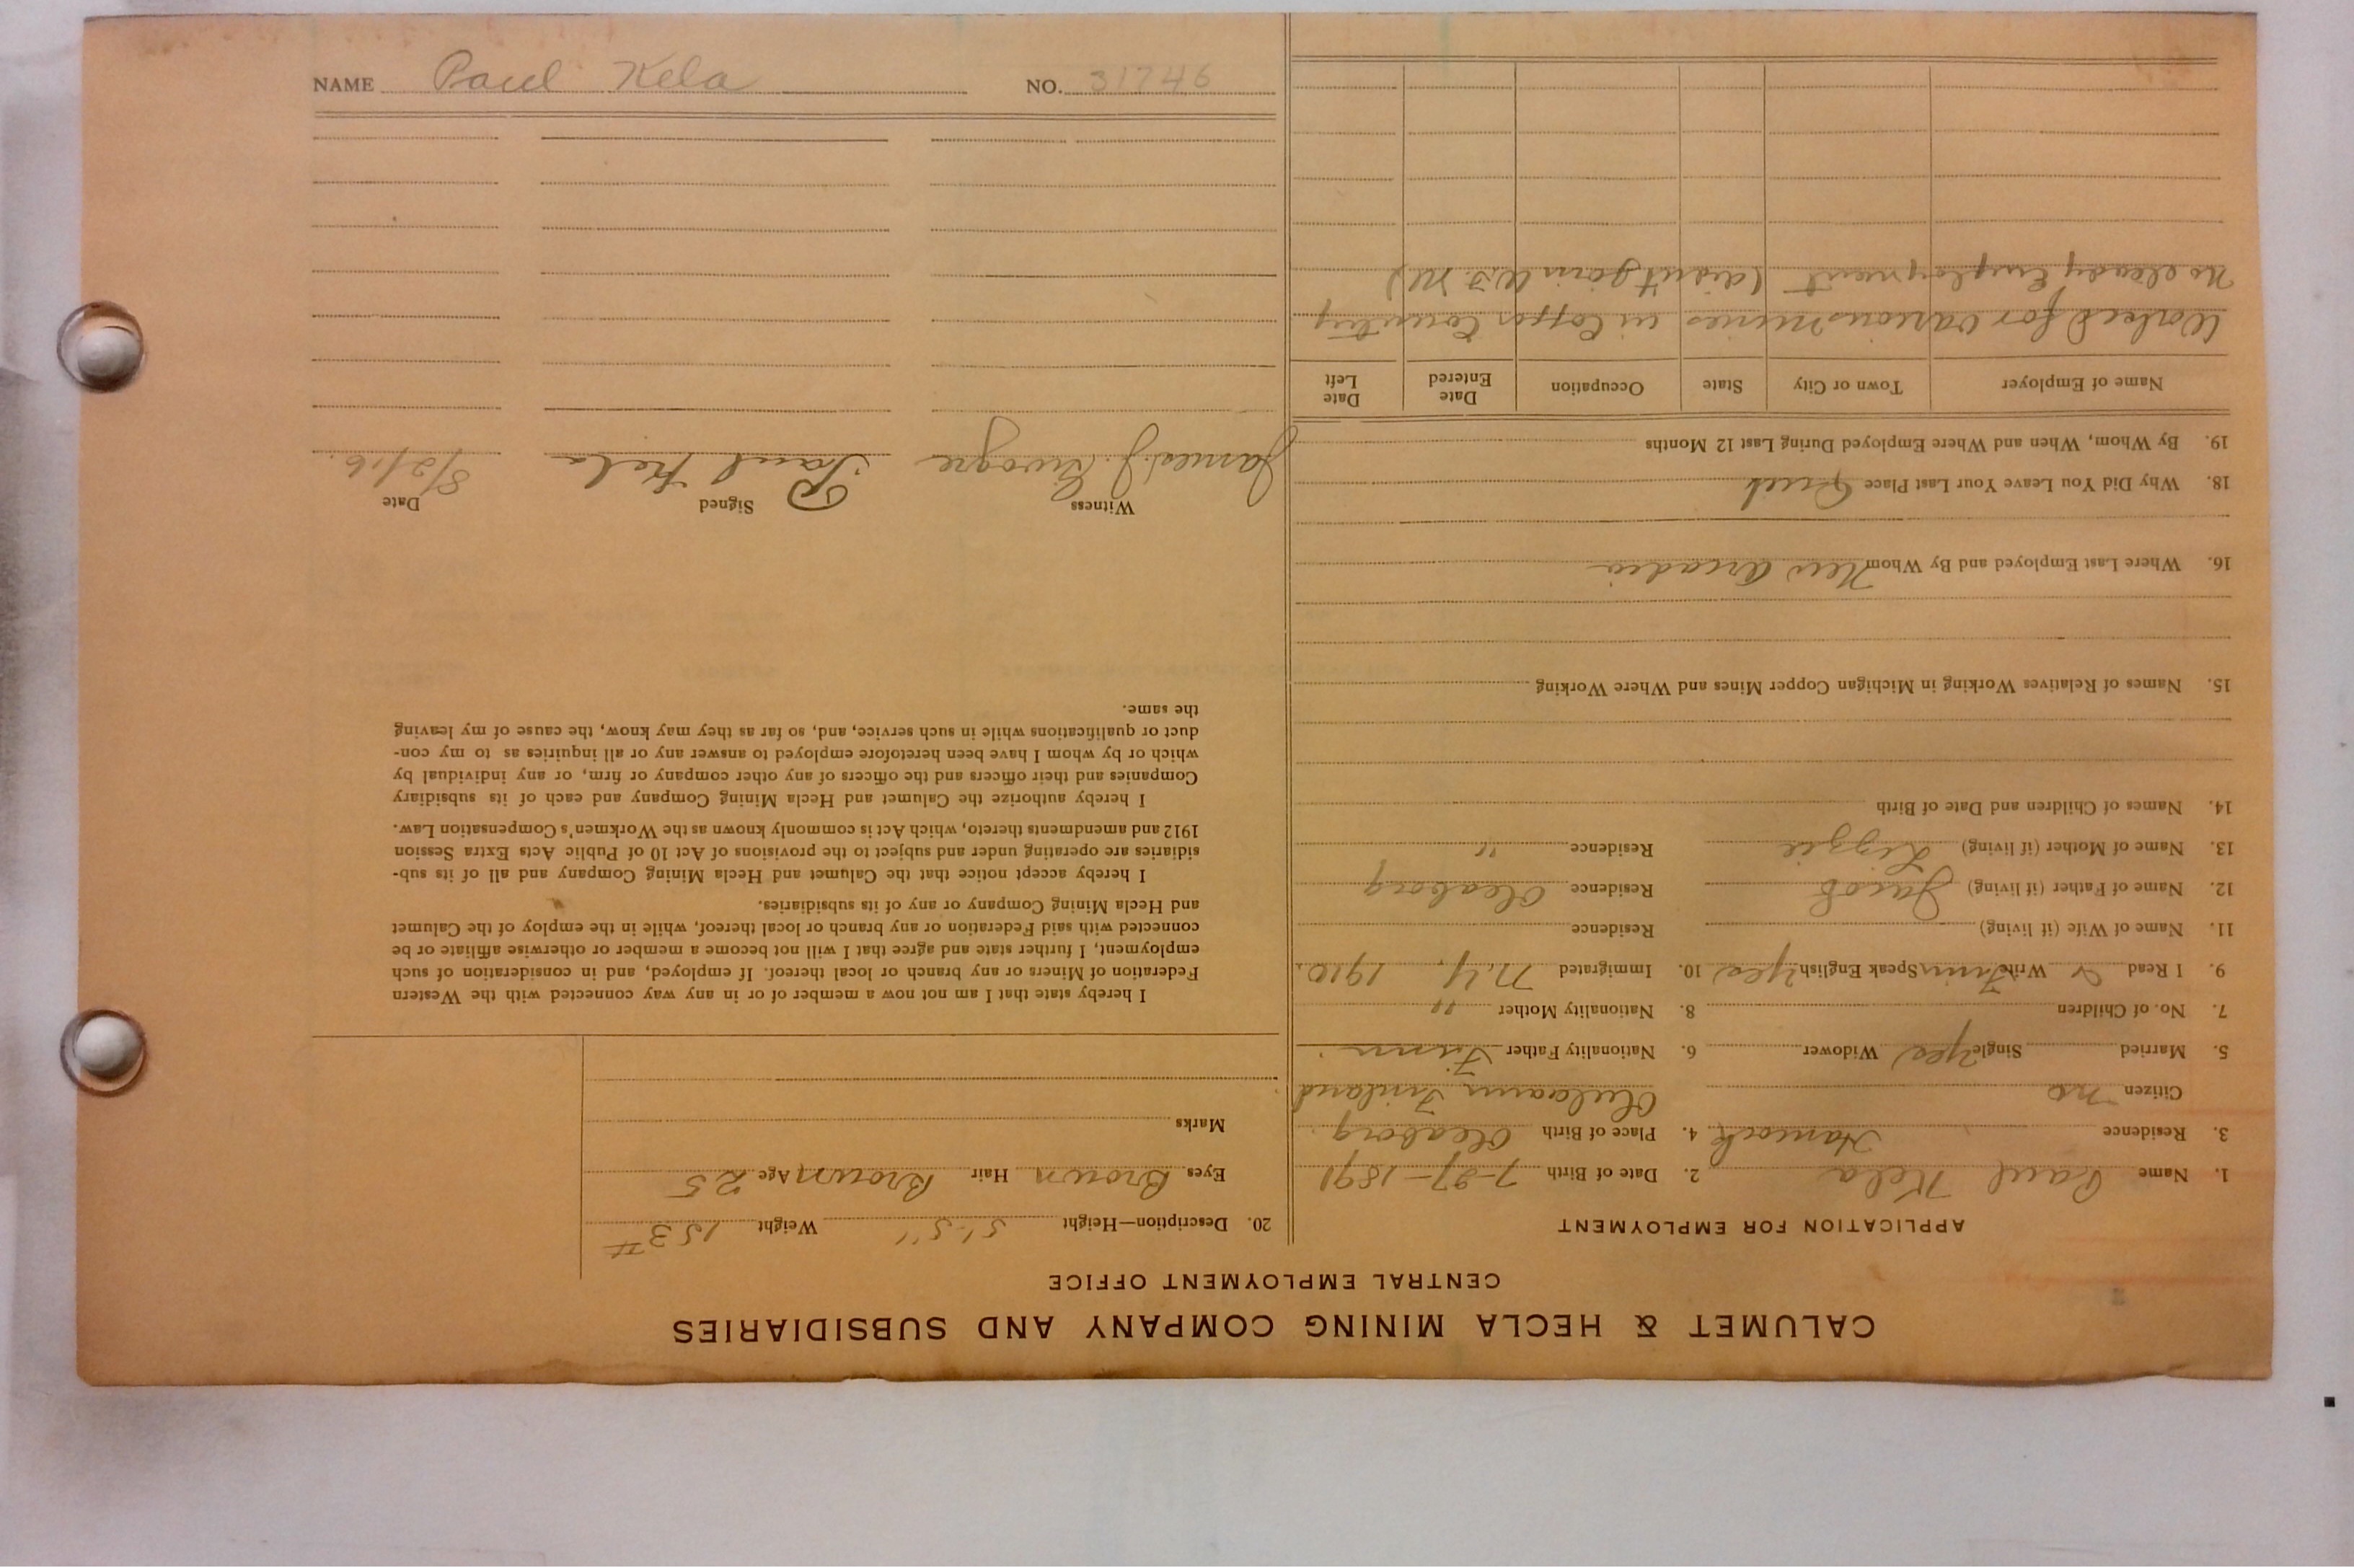 CALUMET & HECLA MINING COMPANY AND SUBSIDIARIES
CENTRAL EMPLOYMENT OFFICE
APPLICATION FOR EMPLOYMENT
1. Name Paul Kela 2. Date of Birth 7-27-1891
3. Residence Hancock 4. Place of Birth Oleaborg
Citizen no Finland
5. Married Single yes Widower 6. Nationality Father Finn
7. No. of Children 8. Nationality Mother "
9. I Read & Write Finn Speak English yes 10. Immigrated N.Y. 1910.
11. Name of Wife (if living) Residence
12. Name of Father (if living) Jacob Residence Oleaborg
13. Name of Mother (if living) Lizzie Residence "
14. Names of Children and Date of Birth
15. Names of Relatives Working in Michigan Copper Mines and Where Working
16. Where Last Employed and By Whom New Arcadia
18. Why Did You Leave Your Last Place Quit
19. By Whom, When and Where Employed During Last 12 Months
Name of Employer Town or City State Occupation Date Entered Date Left
Worked for various mines in Copper Country
no steady Employment (didnt join W.F.M)
20. Description—Height 5'-5" Weight 153#
Eyes Brown Hair Brown Age 25
Marks
I hereby state that I am not now a member of or in any way connected with the Western
Federation of Miners or any branch or local thereof. If employed, and in consideration of such
employment, I further state and agree that I will not become a member or otherwise affiliate or be
connected with said Federation or any branch or local thereof, while in the employ of the Calumet
and Hecla Mining Company or any of its subsidiaries.
I hereby accept notice that the Calumet and Hecla Mining Company and all of its sub-
sidiaries are operating under and subject to the provisions of Act 10 of Public Acts Extra Session
1912 and amendments thereto, which Act is commonly known as the Workmen's Compensation Law.
I hereby authorize the Calumet and Hecla Mining Company and each of its subsidiary
Companies and their officers and the officers of any other company or firm, or any individual by
which or by whom I have been heretofore employed to answer any or all inquiries as to my con-
duct or qualifications while in such service, and, so far as they may know, the cause of my leaving
the same.
Witness Signed Date
James J. Paul Kela 8/2/16.
NAME Paul Kela NO. 31746